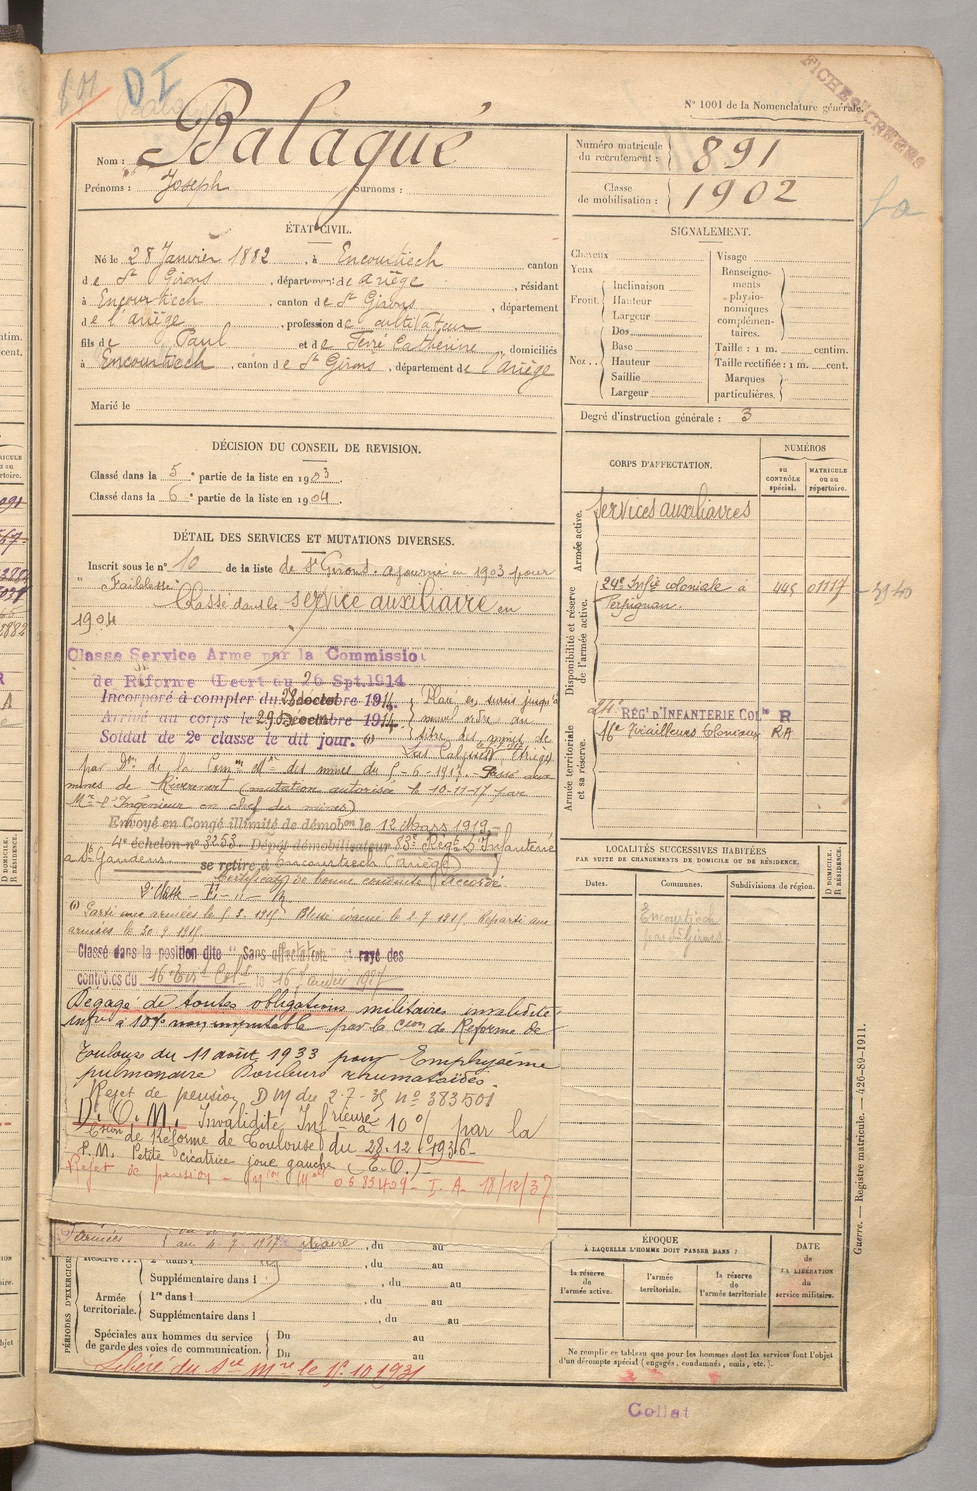 801
DI
FICHES CREEES
N° 1001 de la Nomenclature générale.
Nom : Balagué
Prénoms : Joseph Surnoms :
Numéro matricule du recrutement : 891
Classe de mobilisation : 1902
ÉTAT CIVIL.
Né le 28 Janvier 1882, à Encourtiech, canton
de St Girons, département de Ariège, résidant
à Encourtiech, canton de St Girons, département
de l'Ariège, profession de cultivateur
fils de Paul et de Ferré Catherine, domiciliés
à Encourtiech, canton de St Girons, département de l'Ariège
Marié le
SIGNALEMENT.
Cheveux
Yeux
Front. Inclinaison
Hauteur
Largeur
Nez . . Dos
Base
Hauteur
Saillie
Largeur
Visage
Renseigne-
ments
physio-
nomiques
complémen-
taires.
Taille : 1 m. centim.
Taille rectifiée : 1 m. cent.
Marques
particulières.
Degré d'instruction générale : 3
DÉCISION DU CONSEIL DE REVISION.
Classé dans la 5e partie de la liste en 1903
Classé dans la 6e partie de la liste en 1904.
DÉTAIL DES SERVICES ET MUTATIONS DIVERSES.
Inscrit sous le n° 10 de la liste de St Girons. ajourné en 1903 pour
"Faiblesse"
Classé dans le service auxiliaire en
1904
Classe Service Arme par la Commission
de Réforme (Decret du 26 Spt. 1914
Incorporé à compter du 28 decembre 1914
Arrivé au corps le 29 Decembre 1914.
Soldat de 2e classe le dit jour. (1)
par Don de la Comon Mre des mines du 5-6-1917. Passé aux
mines de Riverenert (mutation autorisée le 10-11-17 par
Mr l'Ingénieur en chef des mines)
Envoyé en Congé illimité de démobon le 12 Mars 1919
4e échelon n° 3253 Dépôt démobilisateur 83e Régt d'Infanterie
à St Gaudens se retire à Encourtiech (Ariège)
Certificat de bonne conduite "Accordé.
(1) Parti aux armées le 5.2.1915 Blessé évacué le 2.7.1915. Reparti aux
armées le 30.9.1915.
Classé dans la position dite "Sans affectation" et rayé des
contrôles du 16e Tirs Colx le 16 Janvier 1927
Dégagé de toutes obligations militaires invalidité
infre à 10% non imputable par la Cion de Réforme de
Toulouse du 11 août 1933 pour Emphysème
pulmonaire Douleurs rhumatoïdes.
Rejet de pension DM du 2-7-35 n° 383501
D.O.M. Invalidité Inférieure à 10% par la
Cion de Réforme de Toulouse du 28.12.1936
P.M. Petite cicatrice joue gauche (E.O.)
Rejet de pension 0683409 - I.A. 18/12/37
CORPS D'AFFECTATION.
NUMÉROS
au CONTRÔLE spécial.
MATRICULE ou au répertoire.
Armée active.
Services auxiliaires
Disponibilité et réserve de l'armée active.
24e Infie coloniale à Perpignan. 445 01117
Armée territoriale et sa réserve.
24e RÉGt D'INFANTERIE COLle R
16e Tirailleurs Coloniaux RA
LOCALITÉS SUCCESSIVES HABITÉES
PAR SUITE DE CHANGEMENTS DE DOMICILE OU DE RÉSIDENCE.
D DOMICILE.
R RÉSIDENCE.
Dates. Communes. Subdivisions de région.
Encourtiech
par St Girons
Armées au 4.7.1917
, du au
2e dans l , du au
Supplémentaire dans l , du au
PÉRIODES D'EXERCICES
Armée territoriale. 1re dans l , du au
Supplémentaire dans l , du au
Spéciales aux hommes du service de garde des voies de communication. Du au
Du au
Libéré du Sce Mre le 15.10.1931
ÉPOQUE
À LAQUELLE L'HOMME DOIT PASSER DANS :
la réserve de l'armée active.
l'armée territoriale.
la réserve de l'armée territoriale
DATE
DE LA LIBÉRATION
du service militaire.
Ne remplir ce tableau que pour les hommes dont les services font l'objet
d'un décompte spécial (engagés, condamnés, omis, etc.).
Collat
Guerre. — Registre matricule. — 426-89-1911.